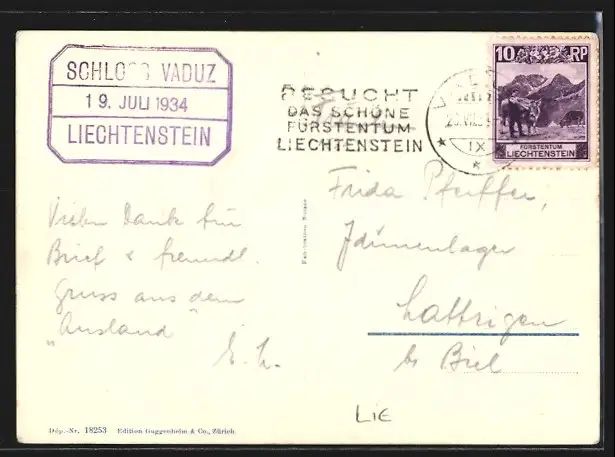 SCHLOSS VADUZ
19. JULI 1934
LIECHTENSTEIN
BESUCHT
DAS SCHÖNE
FÜRSTENTUM
LIECHTENSTEIN
IX
10 RP
FÜRSTENTUM
LIECHTENSTEIN
Vielen Dank für
Brief & freundl.
Gruss aus dem
"Ausland"
E. H.
Frida Pfeiffer,
Lattrigen
b/ Biel
LIE
Dép.-Nr. 18253 Edition Guggenheim & Co., Zürich.